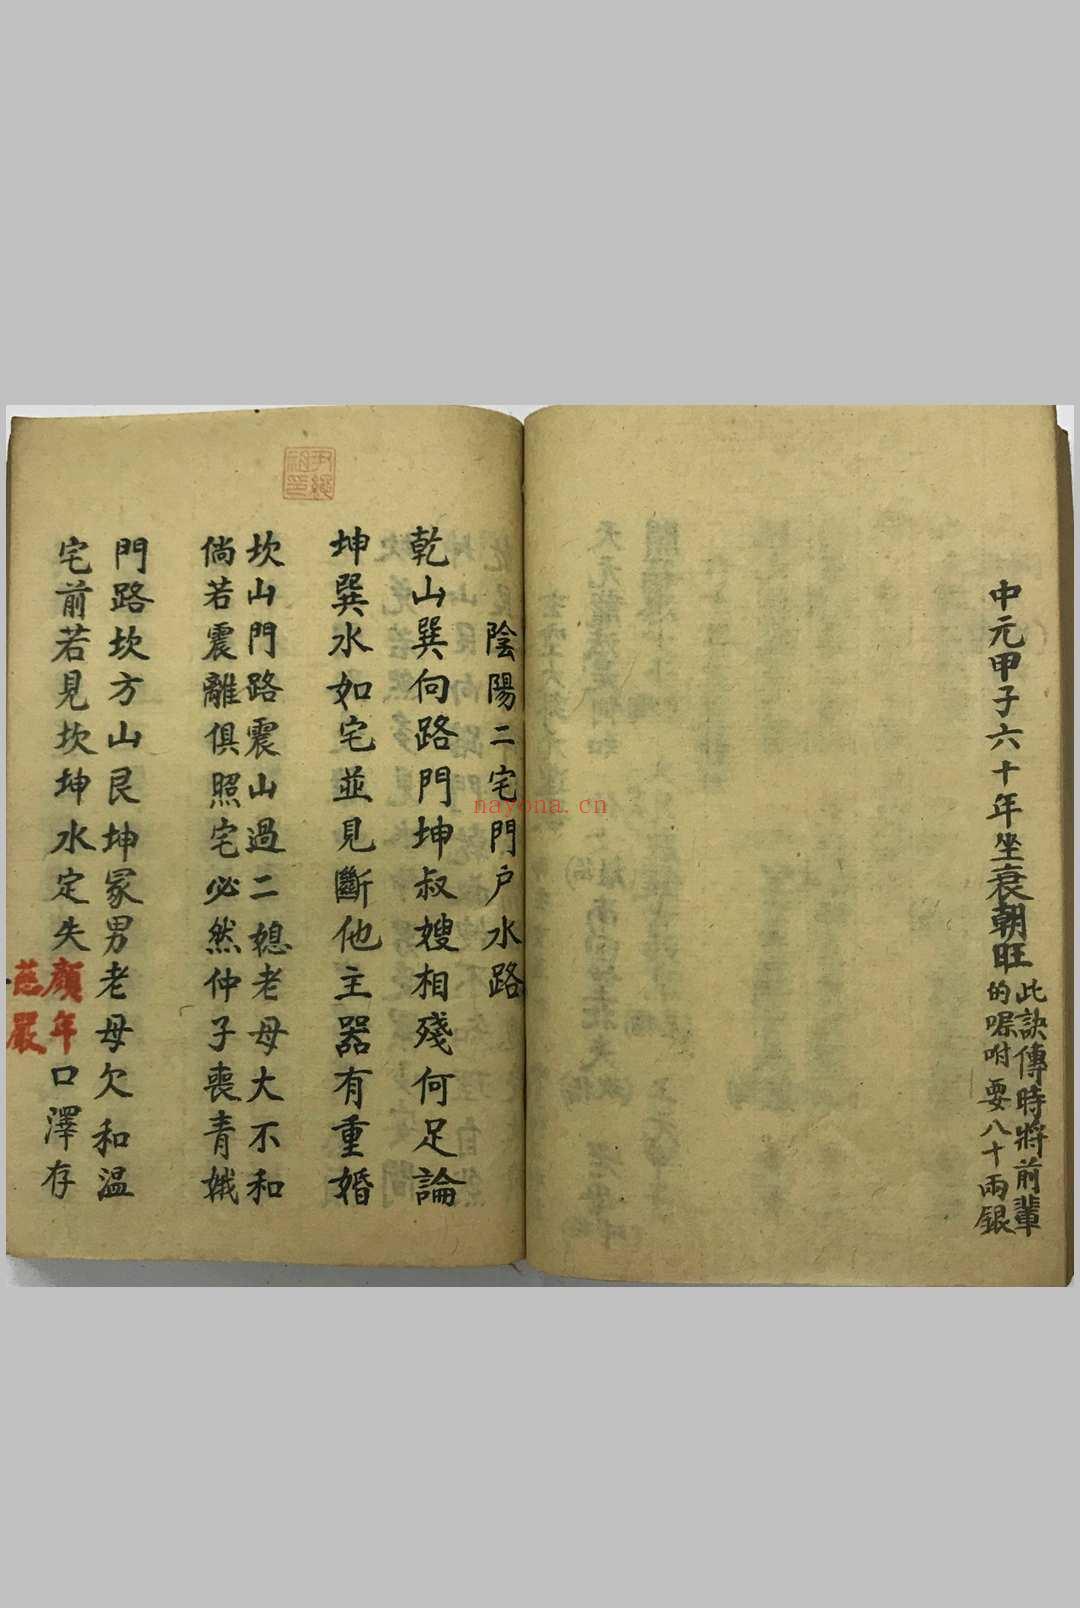 中元甲子六十年坐衰朝旺
此訣傳時將前輩
的嘱咐要八十兩銀
陰陽二宅門户水路
乾山巽向路門坤叔嫂相殘何足論
坤巽水如宅並見斷他主器有重婚
坎山門路震山過二媳老母大不和
倘若震離俱照宅必然仲子喪青娥
門路坎方山艮坤冢男老母欠和温
宅前若見坎坤水定失顏年口澤存
慈嚴
nayona.cn